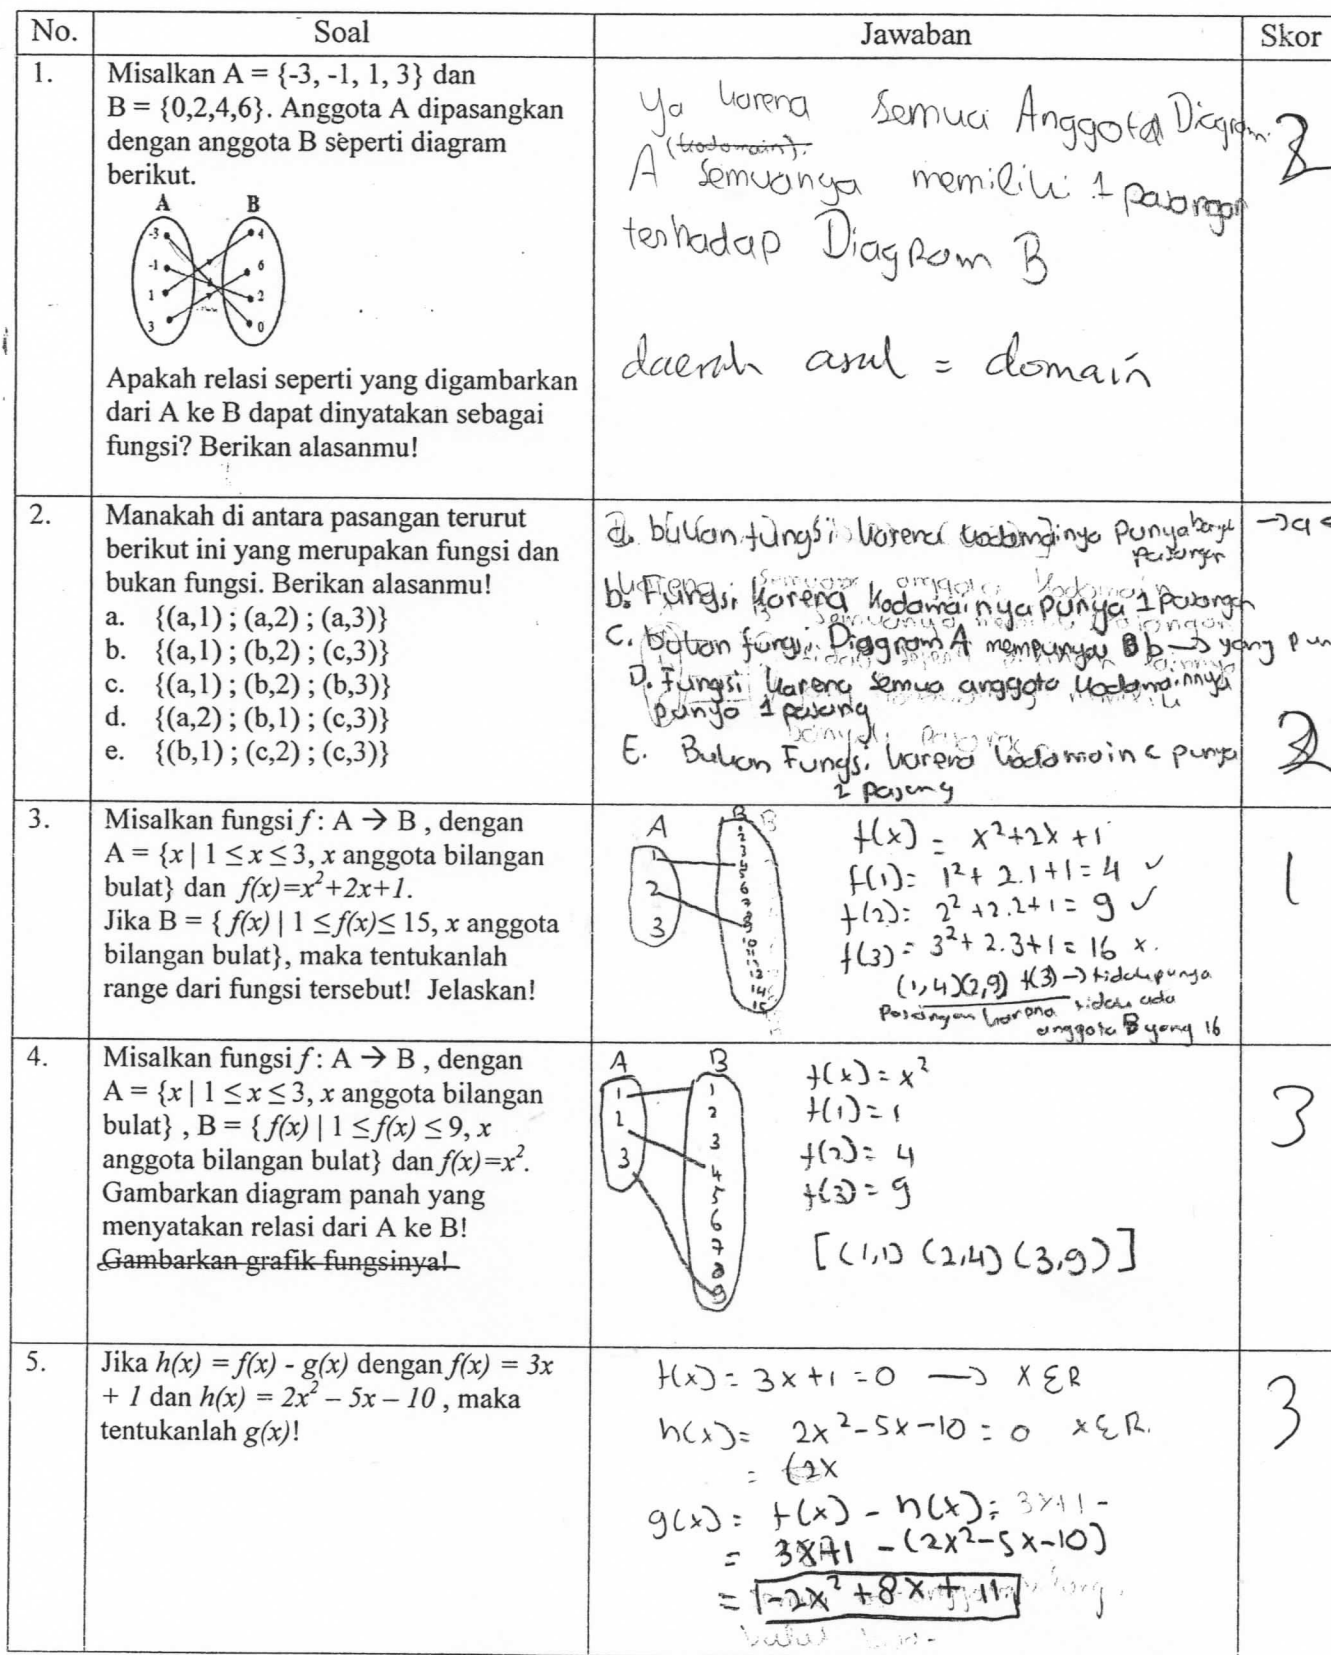 No. Soal Jawaban Skor
1. Misalkan A = {-3, -1, 1, 3} dan
B = {0,2,4,6}. Anggota A dipasangkan
dengan anggota B seperti diagram
berikut.
A B
-3 4
-1 6
1 2
3 0
Apakah relasi seperti yang digambarkan
dari A ke B dapat dinyatakan sebagai
fungsi? Berikan alasanmu!
Ya karena Semua Anggota Diagram
(kodomain).
A Semuanya memiliki 1 pasangan
terhadap Diagram B
daerah asal = domain
2
2. Manakah di antara pasangan terurut
berikut ini yang merupakan fungsi dan
bukan fungsi. Berikan alasanmu!
a. {(a,1) ; (a,2) ; (a,3)}
b. {(a,1) ; (b,2) ; (c,3)}
c. {(a,1) ; (b,2) ; (b,3)}
d. {(a,2) ; (b,1) ; (c,3)}
e. {(b,1) ; (c,2) ; (c,3)}
a. bukan fungsi karena kodomainya Punya
pasangan
b. Fungsi karena kodomainya punya 1 pasangan
C. bukan fungsi. Diagram A mempunyai b → yang pun
D. Fungsi karena semua anggota kodomainnya
punya 1 pasang
E. Bukan Fungsi karena kodomain c punya
2 pasang
2
3. Misalkan fungsi f : A → B , dengan
A = {x | 1 ≤ x ≤ 3, x anggota bilangan
bulat} dan f(x)=x²+2x+1.
Jika B = { f(x) | 1 ≤ f(x) ≤ 15, x anggota
bilangan bulat}, maka tentukanlah
range dari fungsi tersebut! Jelaskan!
A B
1
2
3
f(x) = x²+2x+1
f(1)= 1²+ 2.1+1=4 ✓
f(2)= 2²+2.2+1= 9 ✓
f(3)= 3²+ 2.3+1= 16 x.
(1,4)(2,9) f(3) → tidak punya
pasangan karena tidak ada
anggota B yang 16
1
4. Misalkan fungsi f : A → B , dengan
A = {x | 1 ≤ x ≤ 3, x anggota bilangan
bulat} , B = { f(x) | 1 ≤ f(x) ≤ 9, x
anggota bilangan bulat} dan f(x)=x².
Gambarkan diagram panah yang
menyatakan relasi dari A ke B!
Gambarkan grafik fungsinya!
A B
1 1
2 2
3 3
4
5
6
7
8
9
f(x)=x²
f(1)=1
f(2)= 4
f(3)= 9
[(1,1) (2,4) (3,9)]
3
5. Jika h(x) = f(x) - g(x) dengan f(x) = 3x
+ 1 dan h(x) = 2x² – 5x – 10 , maka
tentukanlah g(x)!
f(x)= 3x+1 =0 → x ∈ R
h(x)= 2x²-5x-10 = 0 x ∈ R.
= (2x
g(x)= f(x) - h(x)= 3x+1 -
= 3x+1 -(2x²-5x-10)
= -2x²+8x+11
3